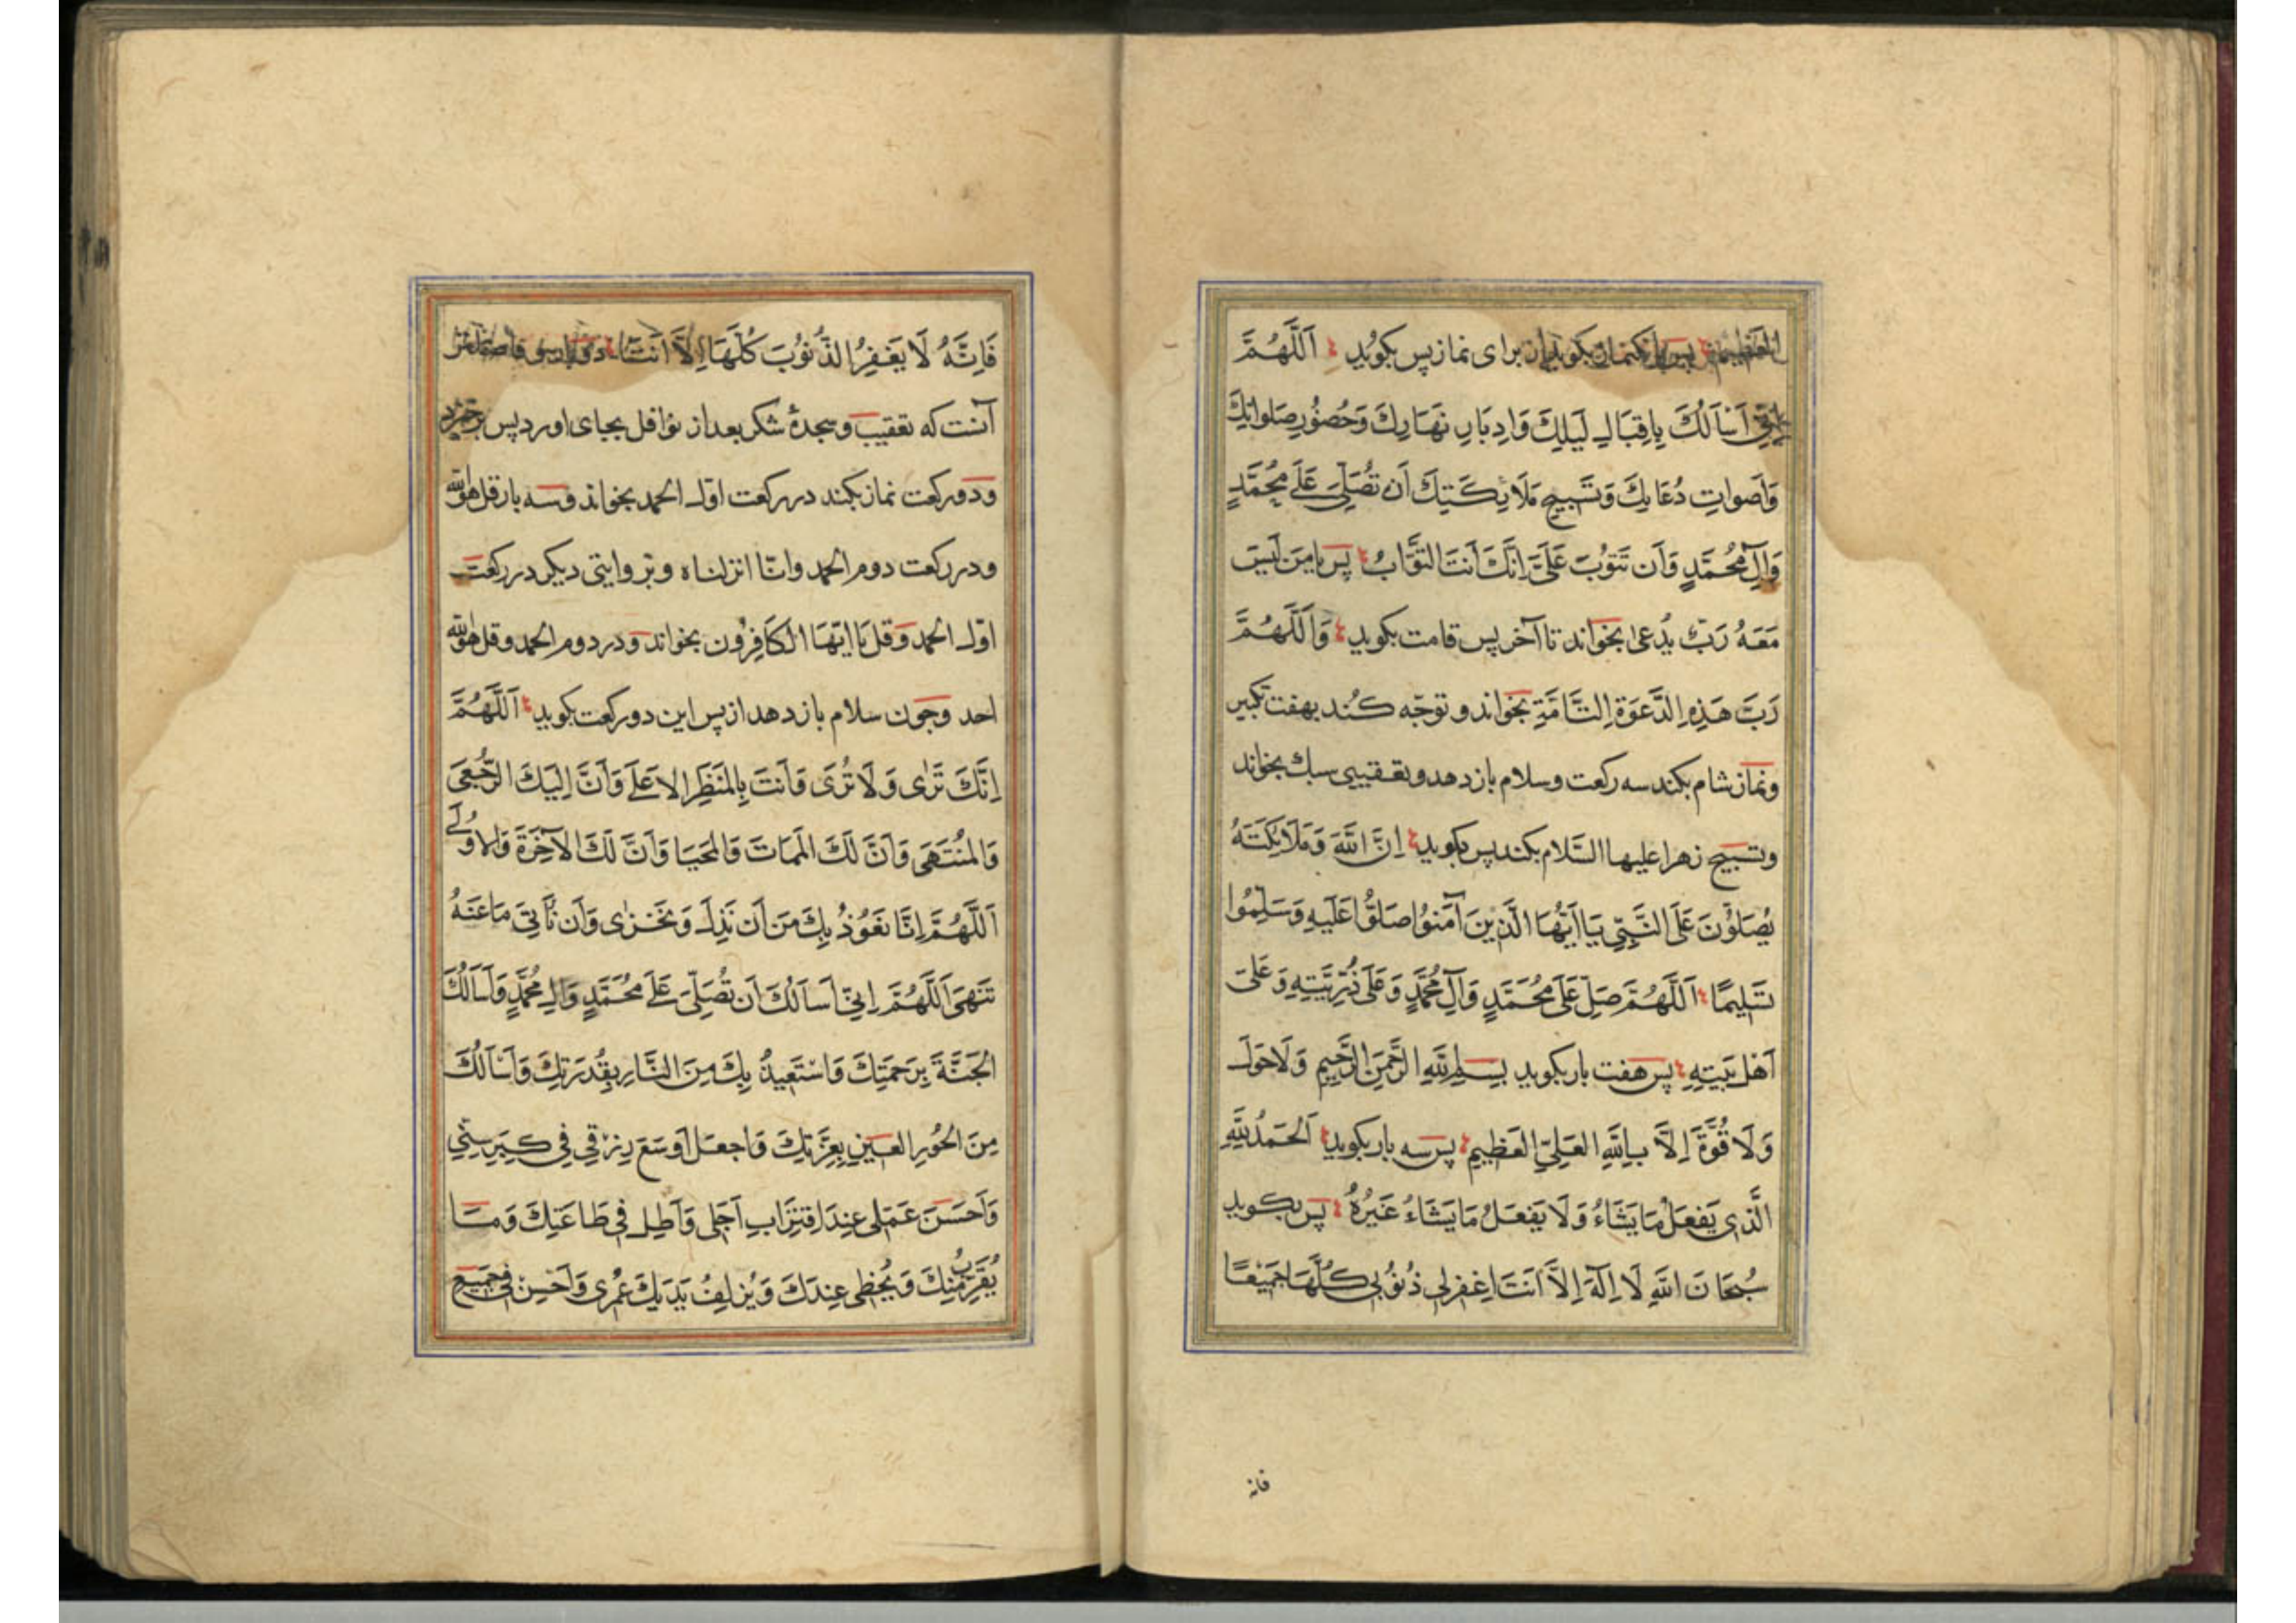 العظیم بس بانک نماز بکوید از برای نماز پس بکوید اَللَّهُمَّ
اِنّی اَسْاَلُكَ بِاِقبَالِ لَیلِكَ وَاِدبَارِ نَهَارِكَ وَحُضُورِ صَلَواتِكَ
وَاَصواتِ دُعَائِكَ وَتَسبِیحِ مَلَائِكَتِكَ اَن تُصَلِّیَ عَلَی مُحَمَّدٍ
وَآلِ مُحَمَّدٍ وَاَن تَتُوبَ عَلَیَّ اِنَّكَ اَنتَ التَّوَّابُ پس یا مَن لَیسَ
مَعَهُ رَبٌّ یُدعی بخواند تا آخر پس قامت بکوید وَاَللَّهُمَّ
رَبَّ هَذِهِ الدَّعوَةِ التَّامَّةِ بخواند و توجّه کند بهفت تکبیر
ونماز شام بکند سه رکعت وسلام باز دهد و تعقیبی سبك بخواند
وتسبیح زهرا علیها السّلام بکند پس بکوید اِنَّ اللّهَ وَمَلَائِكَتَهُ
یُصَلُّونَ عَلَی النَّبِیِّ یَا اَیُّهَا الَّذِینَ آمَنُوا صَلُّوا عَلَیهِ وَسَلِّمُوا
تَسلِیمًا اَللَّهُمَّ صَلِّ عَلَی مُحَمَّدٍ وَآلِ مُحَمَّدٍ وَعَلَی ذُرِّیَّتِهِ وَعَلَی
اَهلِ بَیتِهِ پس هفت بار بکوید بِسمِ اللّهِ الرَّحمَنِ الرَّحِیمِ وَلَا حَولَ
وَلَا قُوَّةَ اِلَّا بِاللّهِ العَلِیِّ العَظِیمِ پس سه بار بکوید اَلحَمدُ لِلّهِ
الَّذِی یَفعَلُ مَا یَشَاءُ وَلَا یَفعَلُ مَا یَشَاءُ غَیرُهُ پس بکوید
سُبحَانَ اللّهِ لَا اِلَهَ اِلَّا اَنتَ اغفِر لِی ذُنُوبِی كُلَّهَا جَمِیعًا
فانه
فَاِنَّهُ لَا یَغفِرُ الذُّنُوبَ كُلَّهَا اِلَّا اَنتَ
آنست که تعقیب وسجدهٔ شکر بعد از نوافل بجای اورد پس برخیزد
ودو رکعت نماز بکند در رکعت اوّل الحمد بخواند وسه بار قل هو اللّه
ودر رکعت دوم الحمد وانّا انزلناه وبر وایتی دیکر در رکعت
اوّل الحمد وقل یا ایّها الکَافِرُون بخواند ودر دوم الحمد وقل هو اللّه
احد وچون سلام باز دهد از پس این دو رکعت بکوید اَللَّهُمَّ
اِنَّكَ تَرَی وَلَا تُرَی وَاَنتَ بِالمَنظَرِ الاَعلَی وَاَنَّ اِلَیكَ الرُّجعَی
وَالمُنتَهَی وَاَنَّ لَكَ المَمَاتَ وَالمَحیَا وَاَنَّ لَكَ الآخِرَةَ وَالاُولَی
اَللَّهُمَّ اِنَّا نَعُوذُ بِكَ مِن اَن نَذِلَّ وَنَخزَی وَاَن نَأتِیَ مَا عَنهُ
تَنهَی اَللَّهُمَّ اِنِّی اَسأَلُكَ اَن تُصَلِّیَ عَلَی مُحَمَّدٍ وَآلِ مُحَمَّدٍ وَاَسأَلُكَ
الجَنَّةَ بِرَحمَتِكَ وَاستَعِیذُ بِكَ مِنَ النَّارِ بِقُدرَتِكَ وَاَسأَلُكَ
مِنَ الحُورِ العِینِ بِعِزَّتِكَ وَاجعَل اَوسَعَ رِزقِی فِی كِبَرِ سِنِّی
وَاَحسَنَ عَمَلِی عِندَ اقتِرَابِ اَجَلِی وَاَطِل فِی طَاعَتِكَ وَمَا
یُقَرِّبُ مِنكَ وَیُحظِی عِندَكَ وَیُزلِفُ لَدَیكَ عُمرِی وَاَحسِن فِی جَمِیعِ